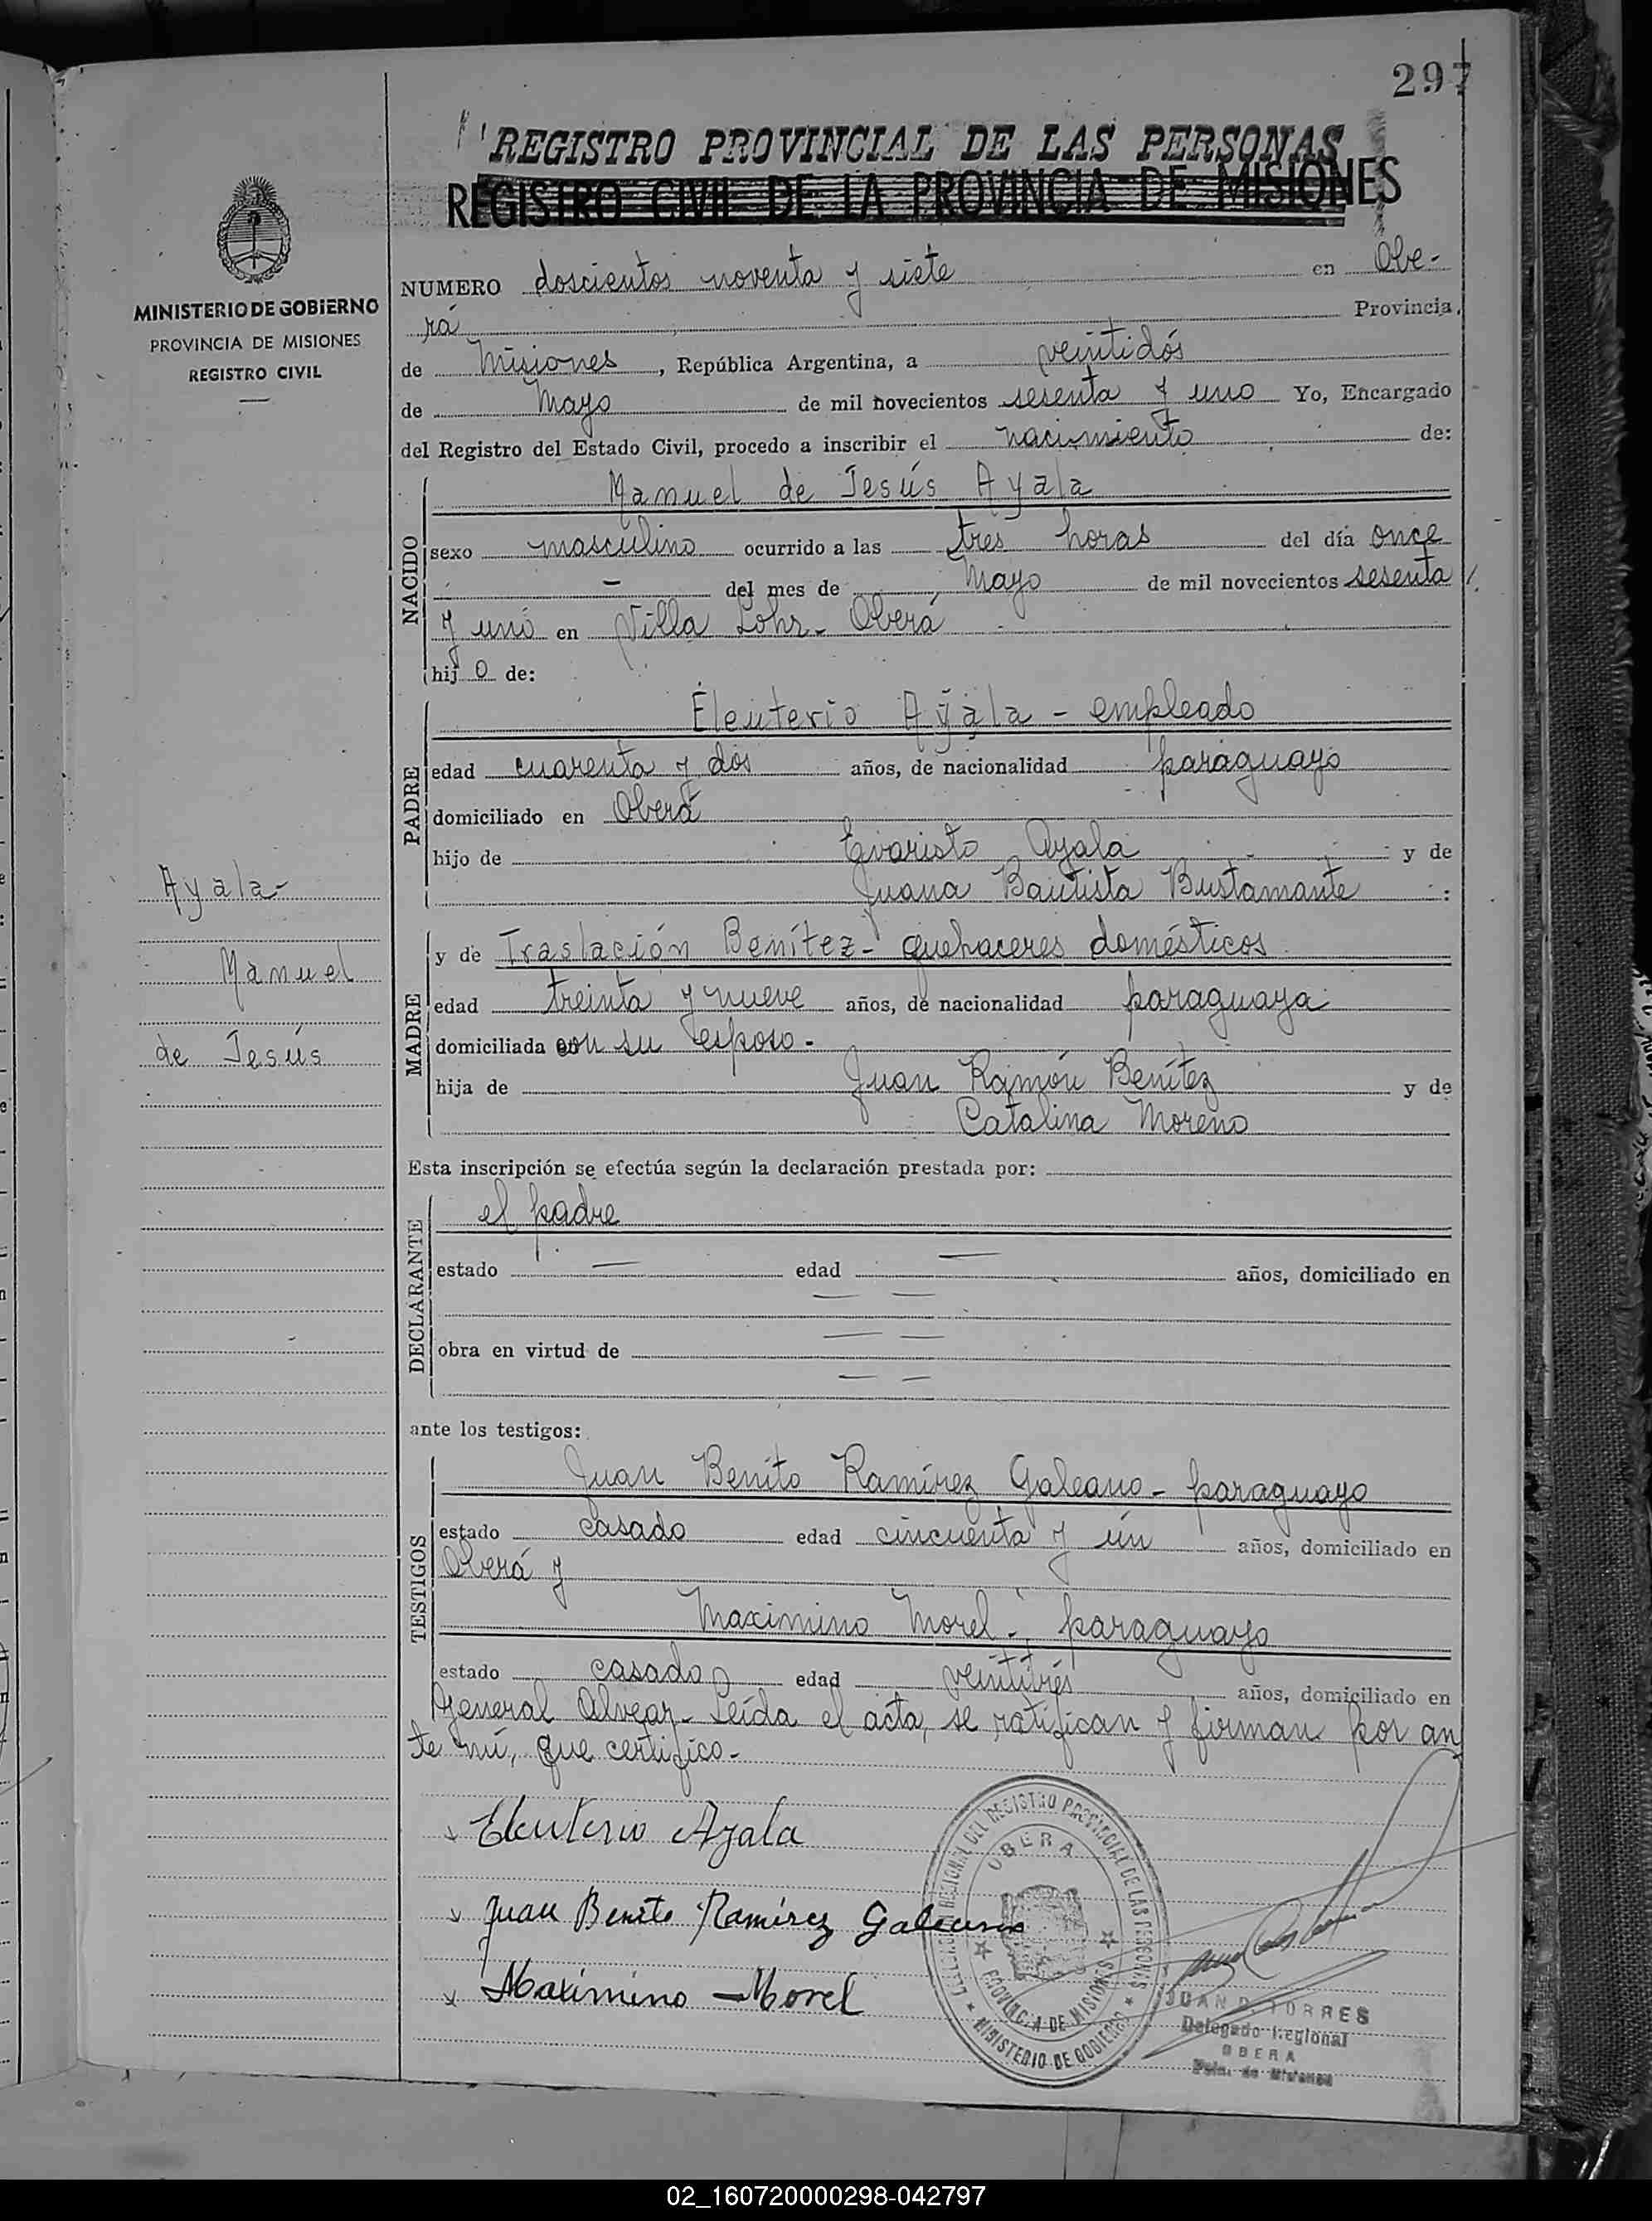 297
REGISTRO PROVINCIAL DE LAS PERSONAS
REGISTRO CIVIL DE LA PROVINCIA DE MISIONES
MINISTERIO DE GOBIERNO
PROVINCIA DE MISIONES
REGISTRO CIVIL
NUMERO doscientos noventa y siete en Obe-
rá Provincia
de Misiones, República Argentina, a veintidós
de Mayo de mil novecientos sesenta y uno Yo, Encargado
del Registro del Estado Civil, procedo a inscribir el nacimiento de:
NACIDO
Manuel de Jesús Ayala
sexo masculino ocurrido a las tres horas del día once
- del mes de Mayo de mil novecientos sesenta
y uno en Villa Lohr - Oberá
hijo de:
PADRE
Eleuterio Ayala - empleado
edad cuarenta y dos años, de nacionalidad paraguayo
domiciliado en Oberá
hijo de Evaristo Ayala y de
Juana Bautista Bustamante :
MADRE
y de Traslación Benítez - quehaceres domésticos
edad treinta y nueve años, de nacionalidad paraguaya
domiciliada con su esposo -
hija de Juan Ramón Benítez y de
Catalina Moreno
Ayala -
Manuel
de Jesús
Esta inscripción se efectúa según la declaración prestada por:
DECLARANTE
el padre
estado — edad — años, domiciliado en
— —
obra en virtud de — —
— —
ante los testigos:
TESTIGOS
Juan Benito Ramírez Galeano - paraguayo
estado casado edad cincuenta y un años, domiciliado en
Oberá y
Maximino Morel - paraguayo
estado casado edad veintitrés años, domiciliado en
General Alvear - Leída el acta, se ratifican y firman por an
te mí, que certifico -
Eleuterio Ayala
Juan Benito Ramírez Galeano
Maximino Morel
DELEGACION REGIONAL DEL REGISTRO PROVINCIAL DE LAS PERSONAS
OBERA
PROVINCIA DE MISIONES
MINISTERIO DE GOBIERNO
JUAN TORRES
Delegado Regional
OBERA
Pcia. de Misiones
02_160720000298-042797